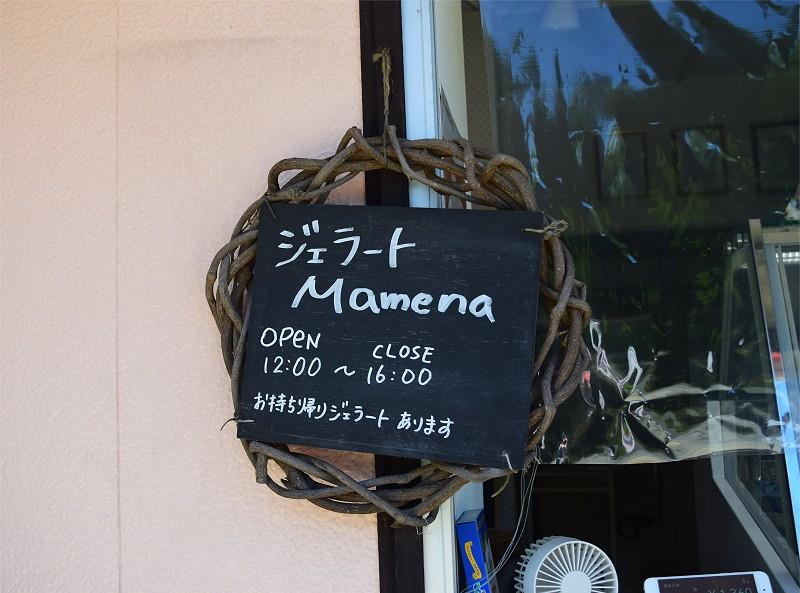 ジェラート
Mamena
OPEN CLOSE
12:00 ~ 16:00
お持ち帰りジェラート あります